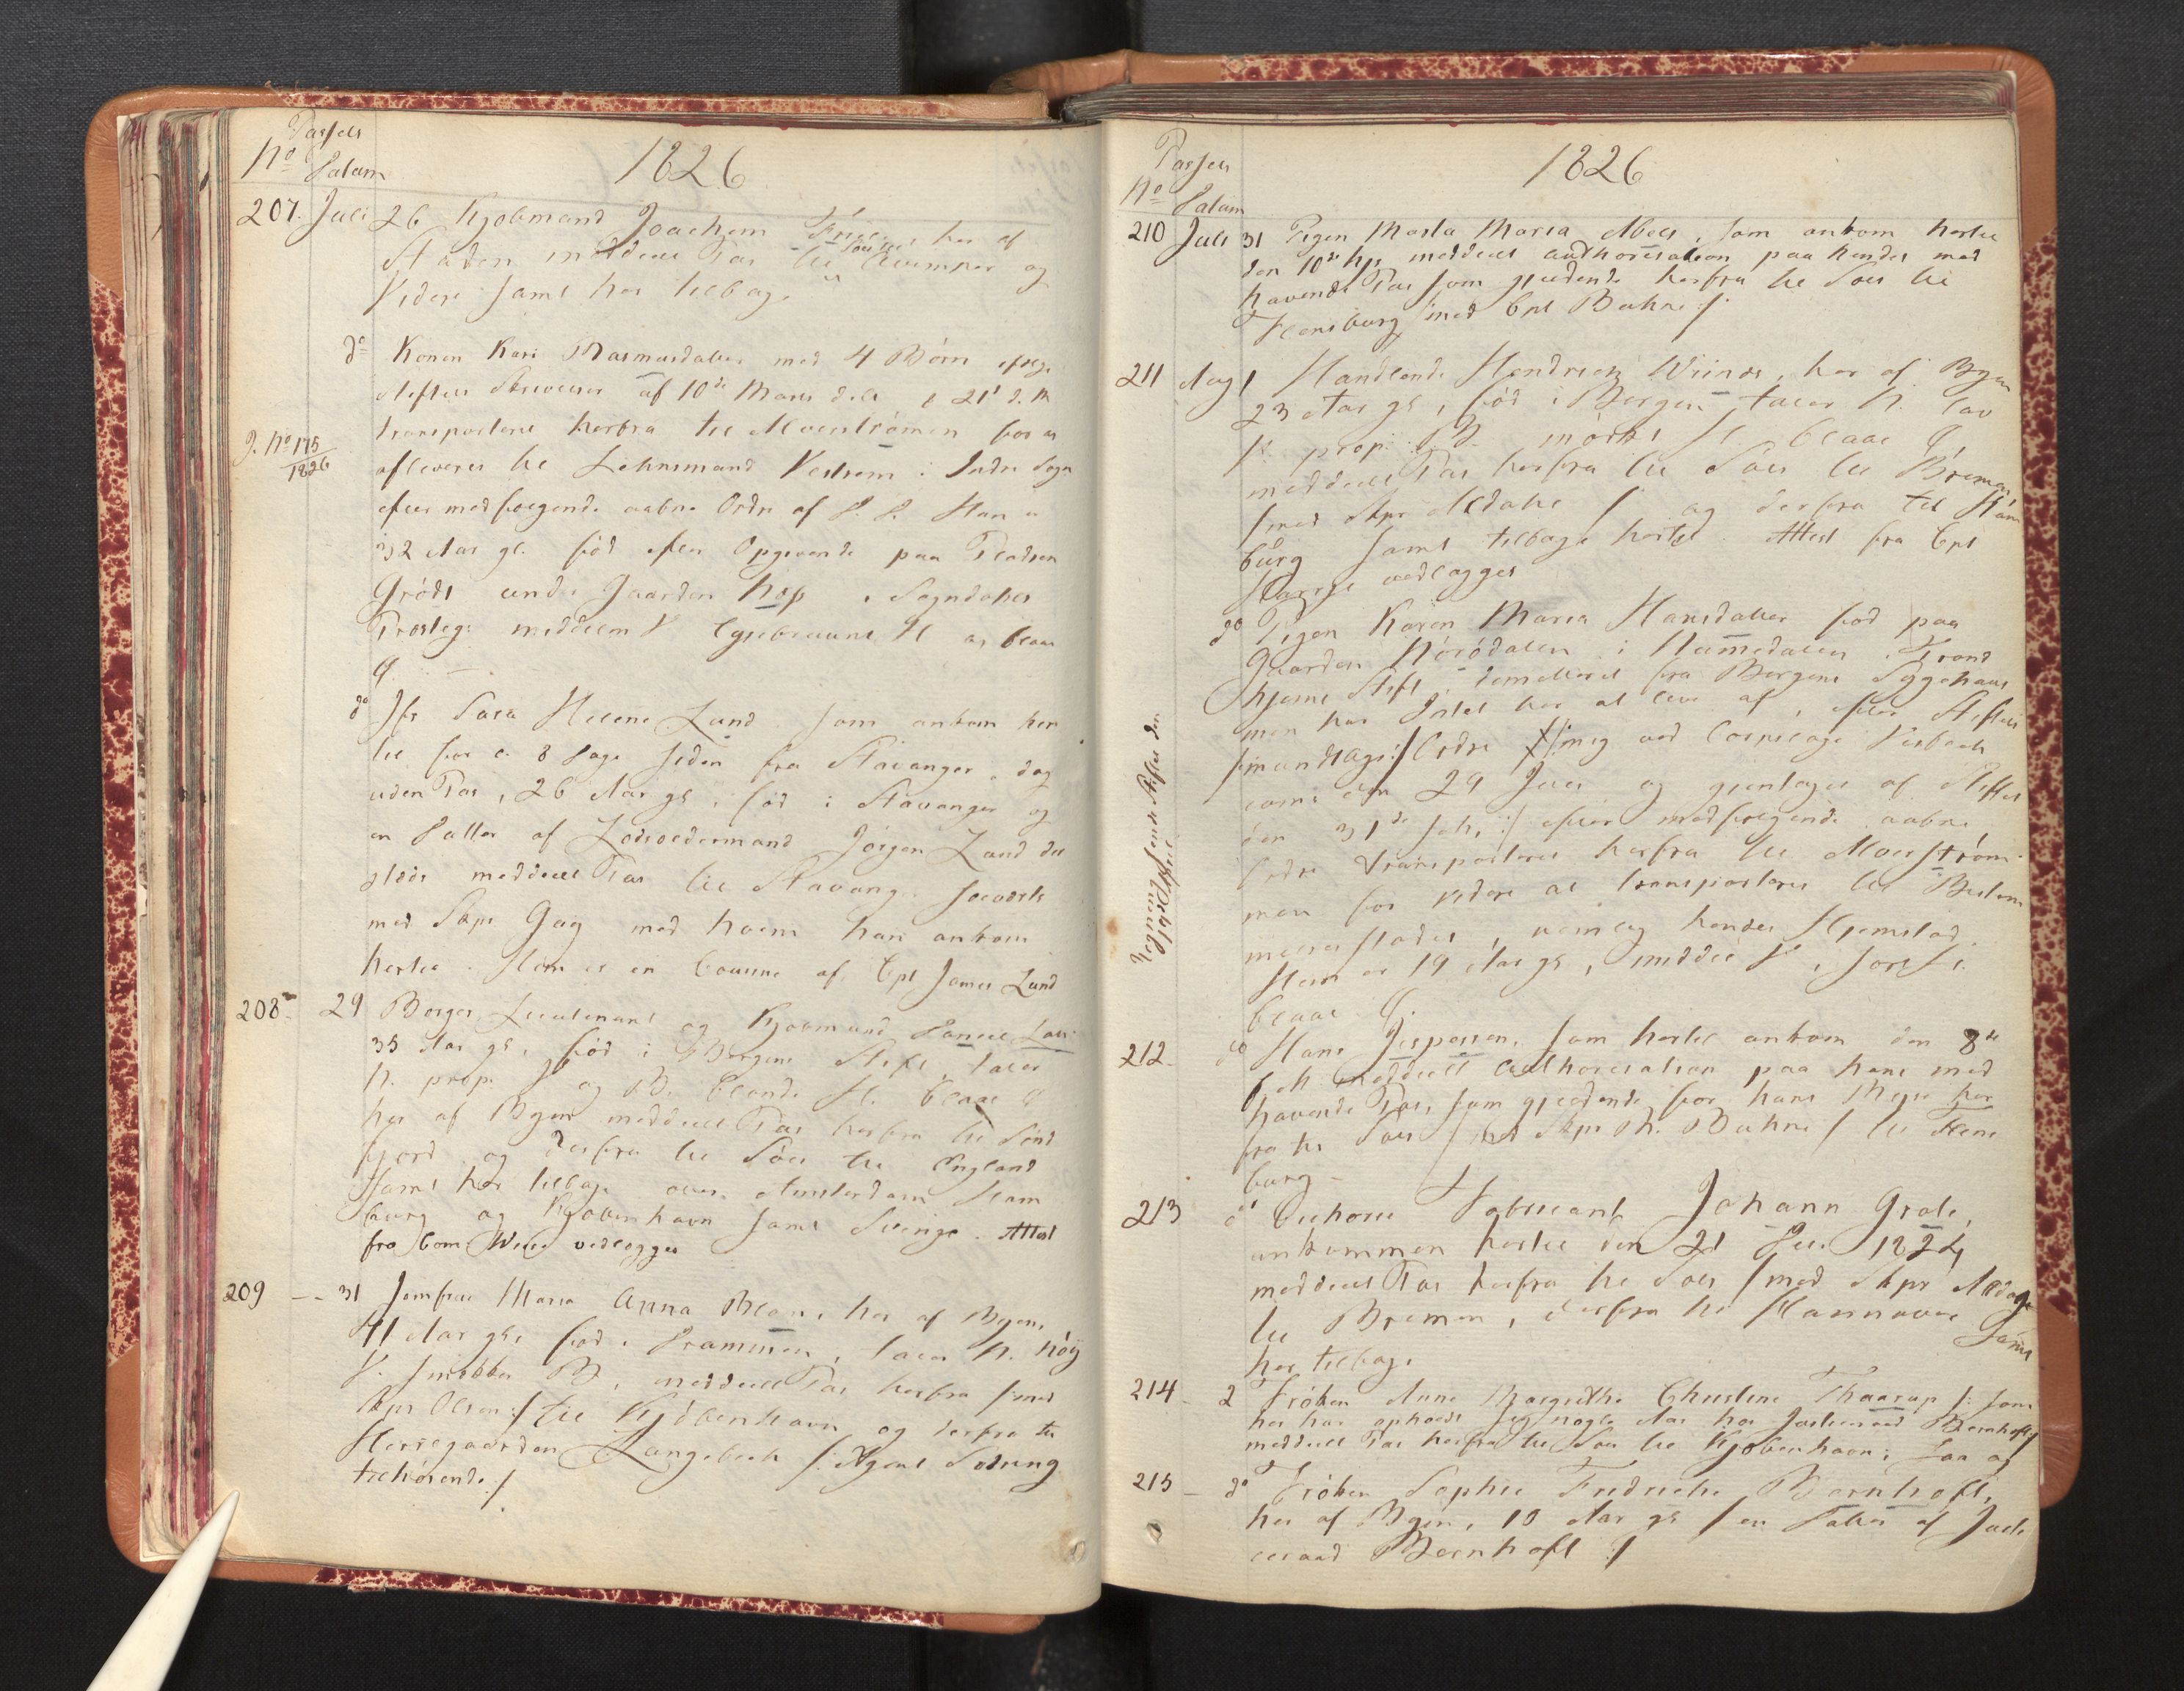 Passets
No Datum
1826
207. Juli 26 Kjøbmand Joachem Friele her af
Staden meddeelt Pas til og
Videre samt her tilbage
do Konen Kari Rasmusdatter med 4 Børn ifølge
Stiftets Skrivelse af 10de Marts dette 21' d. M
J. No 175/1826
transporteret herfra til Alverströmen for at
afleveres til Lehnsmand Vestrem i Indre Sogn
efter medfølgende aabne Ordre af P. P. Hun er
32 Aar gl. fød efter Opgivende paa Pladsen
Grödt under Gaarden Hop i Sogndahls
Præsteg: middelm V lysebruunt H og blaae
Ø.
do Jfr Sara Helene Lund som ankom her
til for c. 8 Dage siden fra Stavanger, dog
uden Pas, 26 Aar gl, fød i Stavanger og
en Datter af Lodsoldermand Jörgen Lund der
stæds meddeelt Pas til Stavang. Soeværts
med Skpr Gag med hvem hun ankom
hertil. Hun er en Cousine af Cpt James Lund
208 29 Borger Lieutenant og Kjøbmand Daniel
35 Aar gl, fød i Bergens Stift, taler
N. prop. V og B. blonde H. blaae Ø
her af Byen meddeelt Pas herfra til Sönd
fjord og derfra til Söes til England
samt her tilbage over Amsterdam Ham
burg og Kjøbenhavn samt Sverige. Attest
fra Com vedlegges
209 -- 31 Jomfrue Maria Anna Blanc her af Byen,
41 Aar gl, fød i Drammen, taler N. höy
V. smækker B, meddeelt Pas herfra /:med
Skpr Olsen:/ til Kjøbenhavn og derfra til
Herregaarden Langebek /:Agent Södring
tilhörende:/
Passets
No Datum
1826
210 Juli 31 Pigen Marta Maria Abels, som ankom hertil
den 10de hjs meddeelt authorisation paa hendes med
havende Pas som gjeldende herfra til Söes til
Flensburg /:med Cpt Buhne:/
211 Aug 1 Handlende Hendrich Wiinds, her af Byen
23 Aar gl, fød i Bergen taler N. lav
V. prop. B. mörkt H. blaae Ø,
meddeelt Pas herfra til Söes til Bremen
/med Skpr Aldahl / og derfra til Ham
burg samt tilbage hertil. Attest fra Cpt
vedlægges
do Pigen Karen Maria Hansdatter fød paa
Gaarden i Nammedalen Trond
hjems Stift, dimitteret fra Bergens Sygehuus
men har Intet her at leve af, efter Stiftets
/:mundtlige:/ Ordre
den 29 Juli og gjentaget af Stiftet
den 31de hjs:/ efter medfølgende aabne
Ordre transporteret herfra til Alverström
men for videre at transporteres til Bestem
melsesstedet, nemlig hendes Hjemstæd.
Hun er 19 Aar gl, middel V, sort H.
blaae Ø.
212. do Hans Jespersen, som hertil ankom den 8de
f. M. meddeelt Authorisation paa hans med
havende Pas, som gjeldende for hans Reyse her
fra til Söes / Skpr Buhne / til Flens
burg
213 do Fabricant Johann Grote,
ankommen hertil den 21 1824
meddeelt Pas herfra til Söes /med Skpr Aldahl
til Bremen, derfra til Hannover samt
her tilbage
214 - 2 Fröken Anne Margrethe Christine Thaarup /: som
her har opholdt sig nogle Aar hos Justicraad Bernhoft:/
meddeelt Pas herfra til Söes til Kjøbenhavn;
215 - do Fröken Sophie Fredriche Bernhoft,
her af Byen, 19 Aar gl / en Datter af Just
iceraad Bernhoft :/